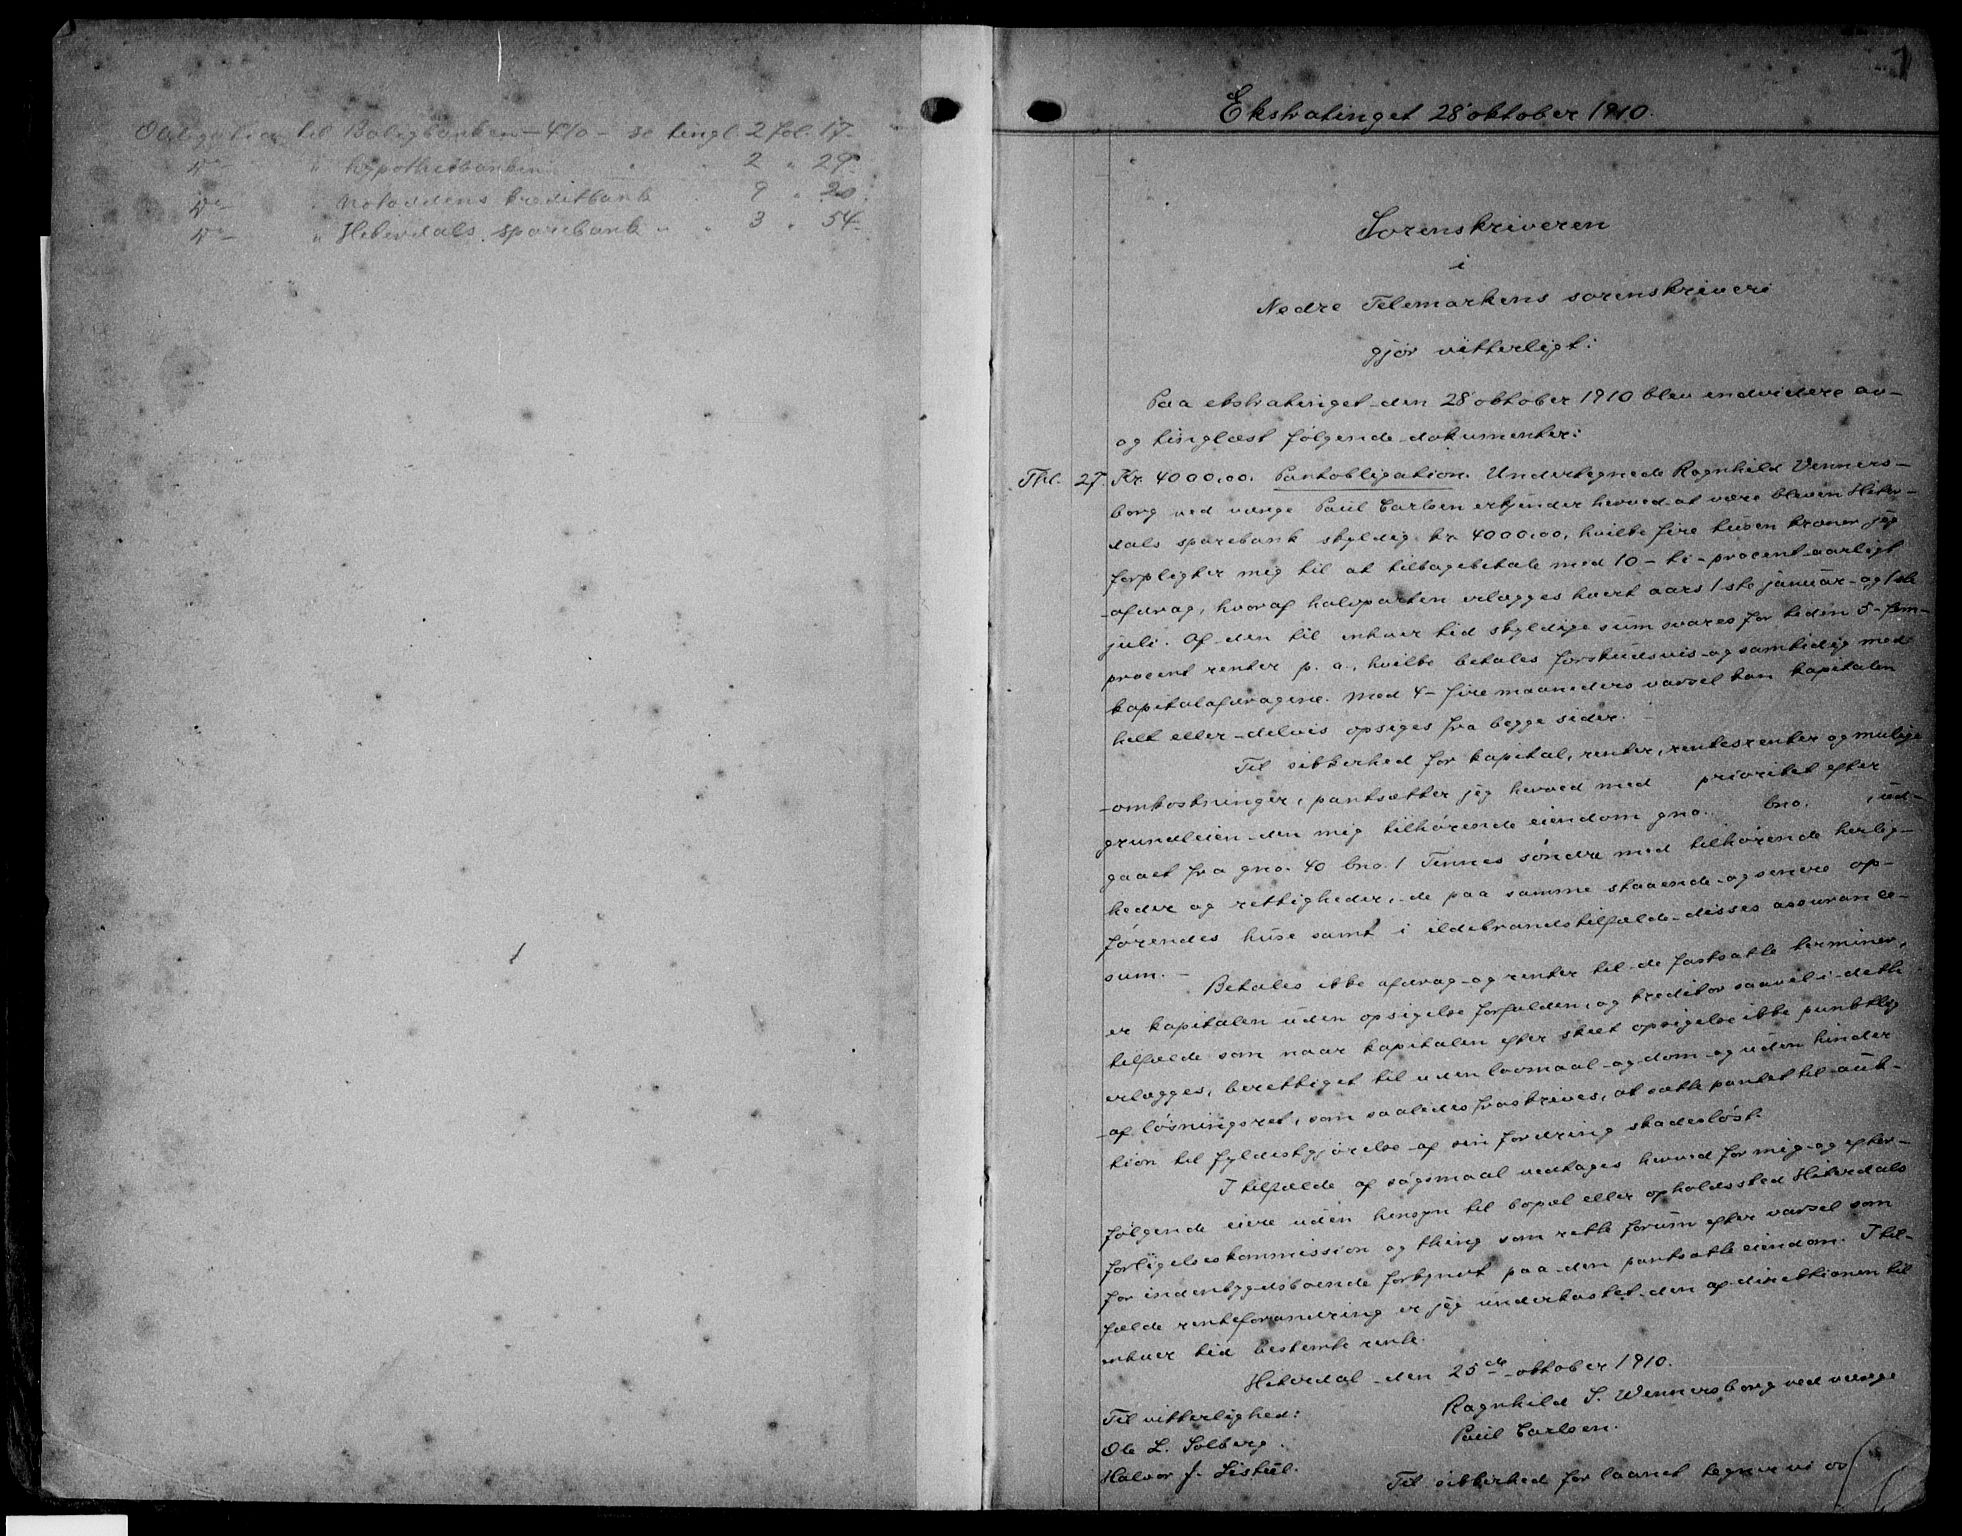 Obligation til Boligbanken - 4% - se tingl. 2 fol. 17.
Do - " Hypothekbanken " " 2 " 29.
Do - " Notoddens kreditbank " 9 " 20.
Do - " Hiterdals sparebank " " 3 " 54.
1
Ekstratinget 28' oktober 1910.
Sorenskriveren
i
Nedre Telemarkens sorenskriveri
gjør vitterligt:
Paa ekstratinget den 28' oktober 1910 blev endvidere av-
og tinglæst følgende dokumenter:
Thl. 27. Kr. 4000,00. Pantobligation. Undertegnede Ragnhild Venners-
borg ved værge Paul Carlsen erkjender herved at være bleven Hiter-
dals sparebank skyldig kr. 4000,00, hvilke fire tusen kroner jeg
forpligter mig til at tilbagebetale med 10 - ti - procent aarligt
afdrag, hvoraf halvparten erlægges hvert aars 1ste januar og 1ste
juli. Af den til enhver tid skyldige sum svares for tiden 5 - fem -
procent renter p. a., hvilke betales forskudsvis og samtidig med
kapitalafdragene. Med 4 - fire maaneders varsel kan kapitalen
helt eller delvis opsiges fra begge sider.
Til sikkerhed for kapital, renter, rentesrenter og mulige
omkostninger, pantsætter jeg herved med prioritet efter
grundleien den mig tilhørende eiendom gno. bno. , ud-
gaaet fra gno. 40 bno. 1 Tinnes søndre med tilhørende herlig-
heder og rettigheder, de paa samme staaende og senere op-
førendes huse samt i ildebrandstilfælde disses assurance-
sum. -
Betales ikke afdrag og renter til de fastsatte terminer,
er kapitalen uden opsigelse forfalden, og kreditor saavel i dette
tilfælde som naar kapitalen efter skeet opsigelse ikke punktlig
erlægges, berettiget til uden lovmaal og dom og uden hinder
af løsningsret, som saaledes fraskrives, at sætte pantet til auk-
tion til fyldestgjørelse af sin fordring skadesløst.
I tilfælde af søgsmaal vedtages herved for mig og efter-
følgende eiere uden hensyn til bopæl eller opholdssted Hiterdals
forligelseskommission og thing som rette forum efter varsel som
for indenbygdsboende forkyndt paa den pantsatte eiendom. I til-
fælde renteforandring er jeg underkastet den af direktionen til
enhver tid bestemte rente.
Hiterdal den 25de oktober 1910.
Ragnhild S. Wennersborg ved værge
Paul Carlsen.
Til vitterlighed:
Ole L. Solberg.
Halvor J. Listül.
Til sikkerhed for laanet tegner vi os